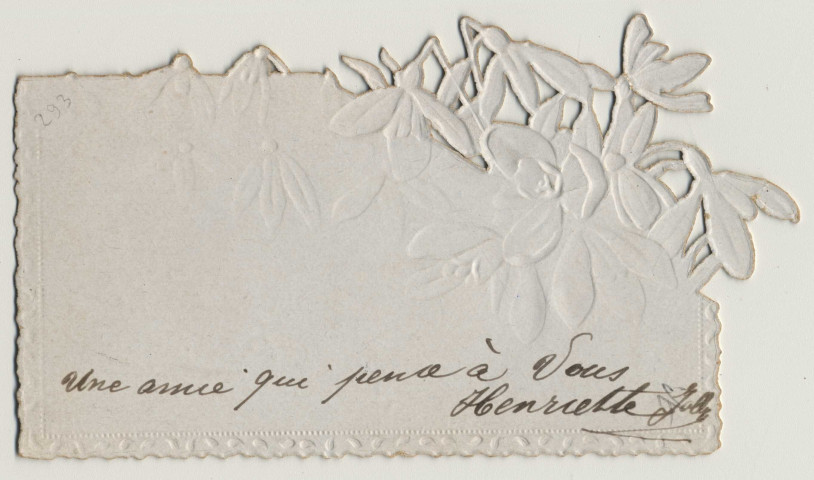 293
Une amie qui pense à Vous
Henriette